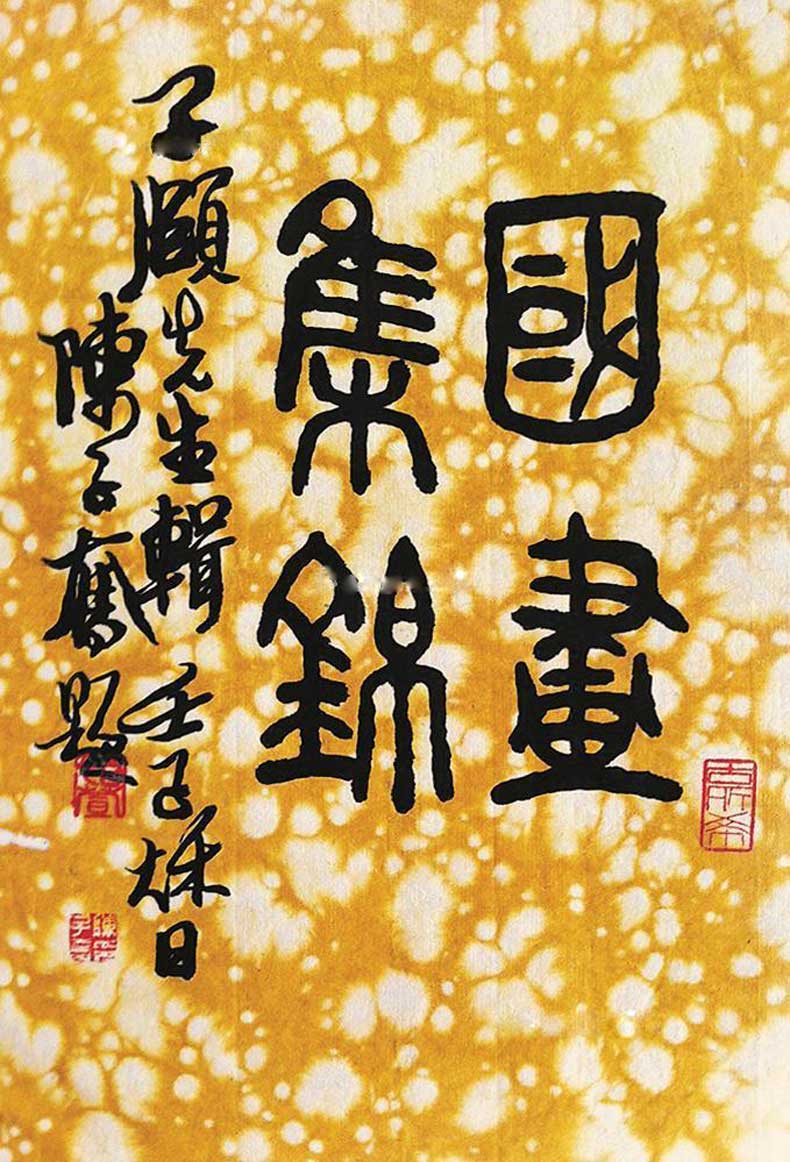 國畫
集錦
子頤先生輯 壬子秌日
陳子奮題